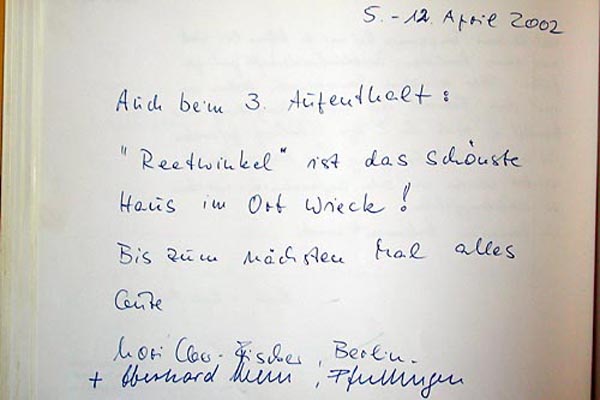 5. - 12. April 2002
Auch beim 3. Aufenthalt:
"Reetwinkel" ist das schönste
Haus im Ort Wieck!
Bis zum nächsten Mal alles
Gute
Fischer, Berlin.
+ Eberhard, Pfullingen